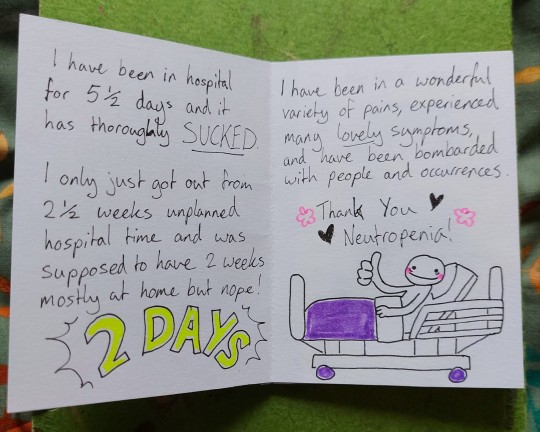 I have been in hospital
for 5½ days and it
has thoroughly SUCKED.
I only just got out from
2½ weeks unplanned
hospital time and was
supposed to have 2 weeks
mostly at home but nope!
2 DAYS
I have been in a wonderful
variety of pains, experienced
many lovely symptoms,
and have been bombarded
with people and occurrences.
Thank You
Neutropenia!